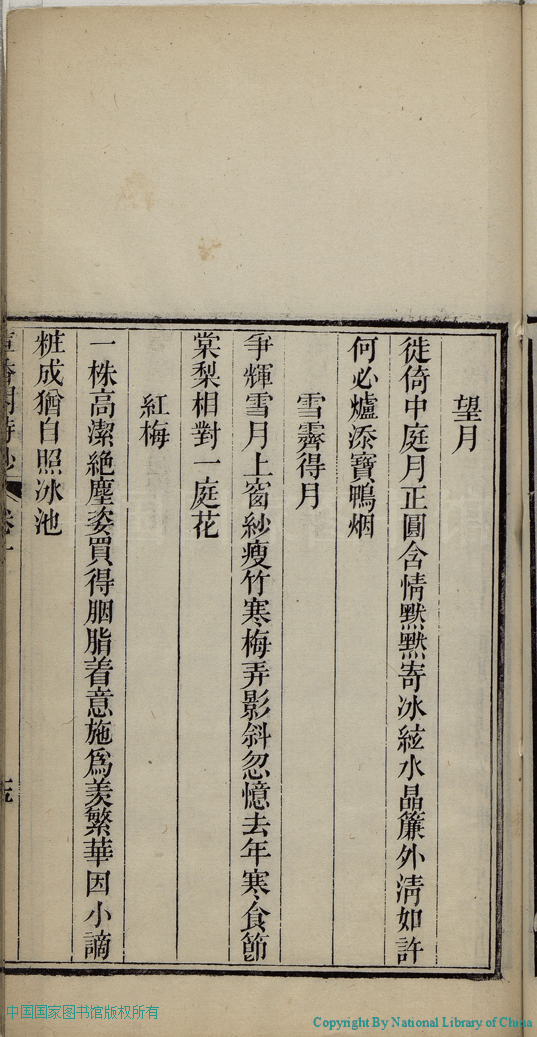 望月
徙倚中庭月正圓含情默默寄冰絃水晶簾外清如許
何必爐添寶鴨烟
雪霽得月
爭輝雪月上窗紗瘦竹寒梅弄影斜忽憶去年寒食節
棠梨相對一庭花
紅梅
一株高潔絶塵姿買得胭脂着意施爲羡繁華因小謫
粧成猶自照冰池
中国国家图书馆版权所有
Copyright By National Library of China